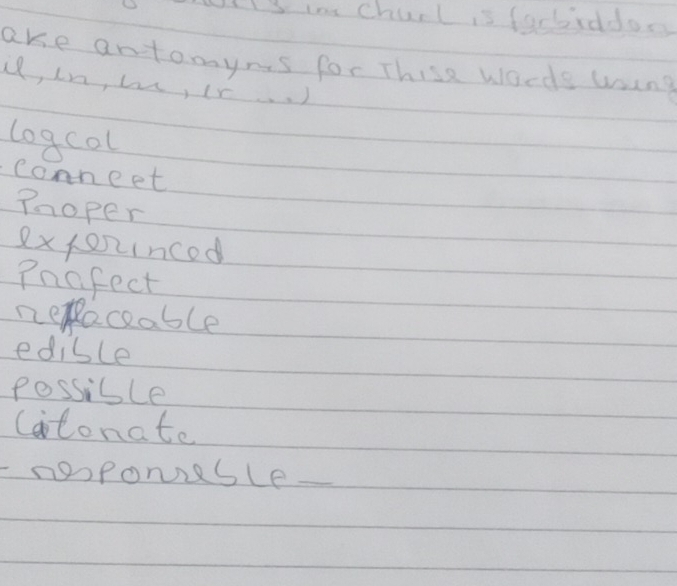 in church is forbidden
ake antomyms for These words using
il, in, im, ir ...)
logcal
connect
Proper
experinced
Prafect
replaceable
edible
possible
Litonate
- responsible _